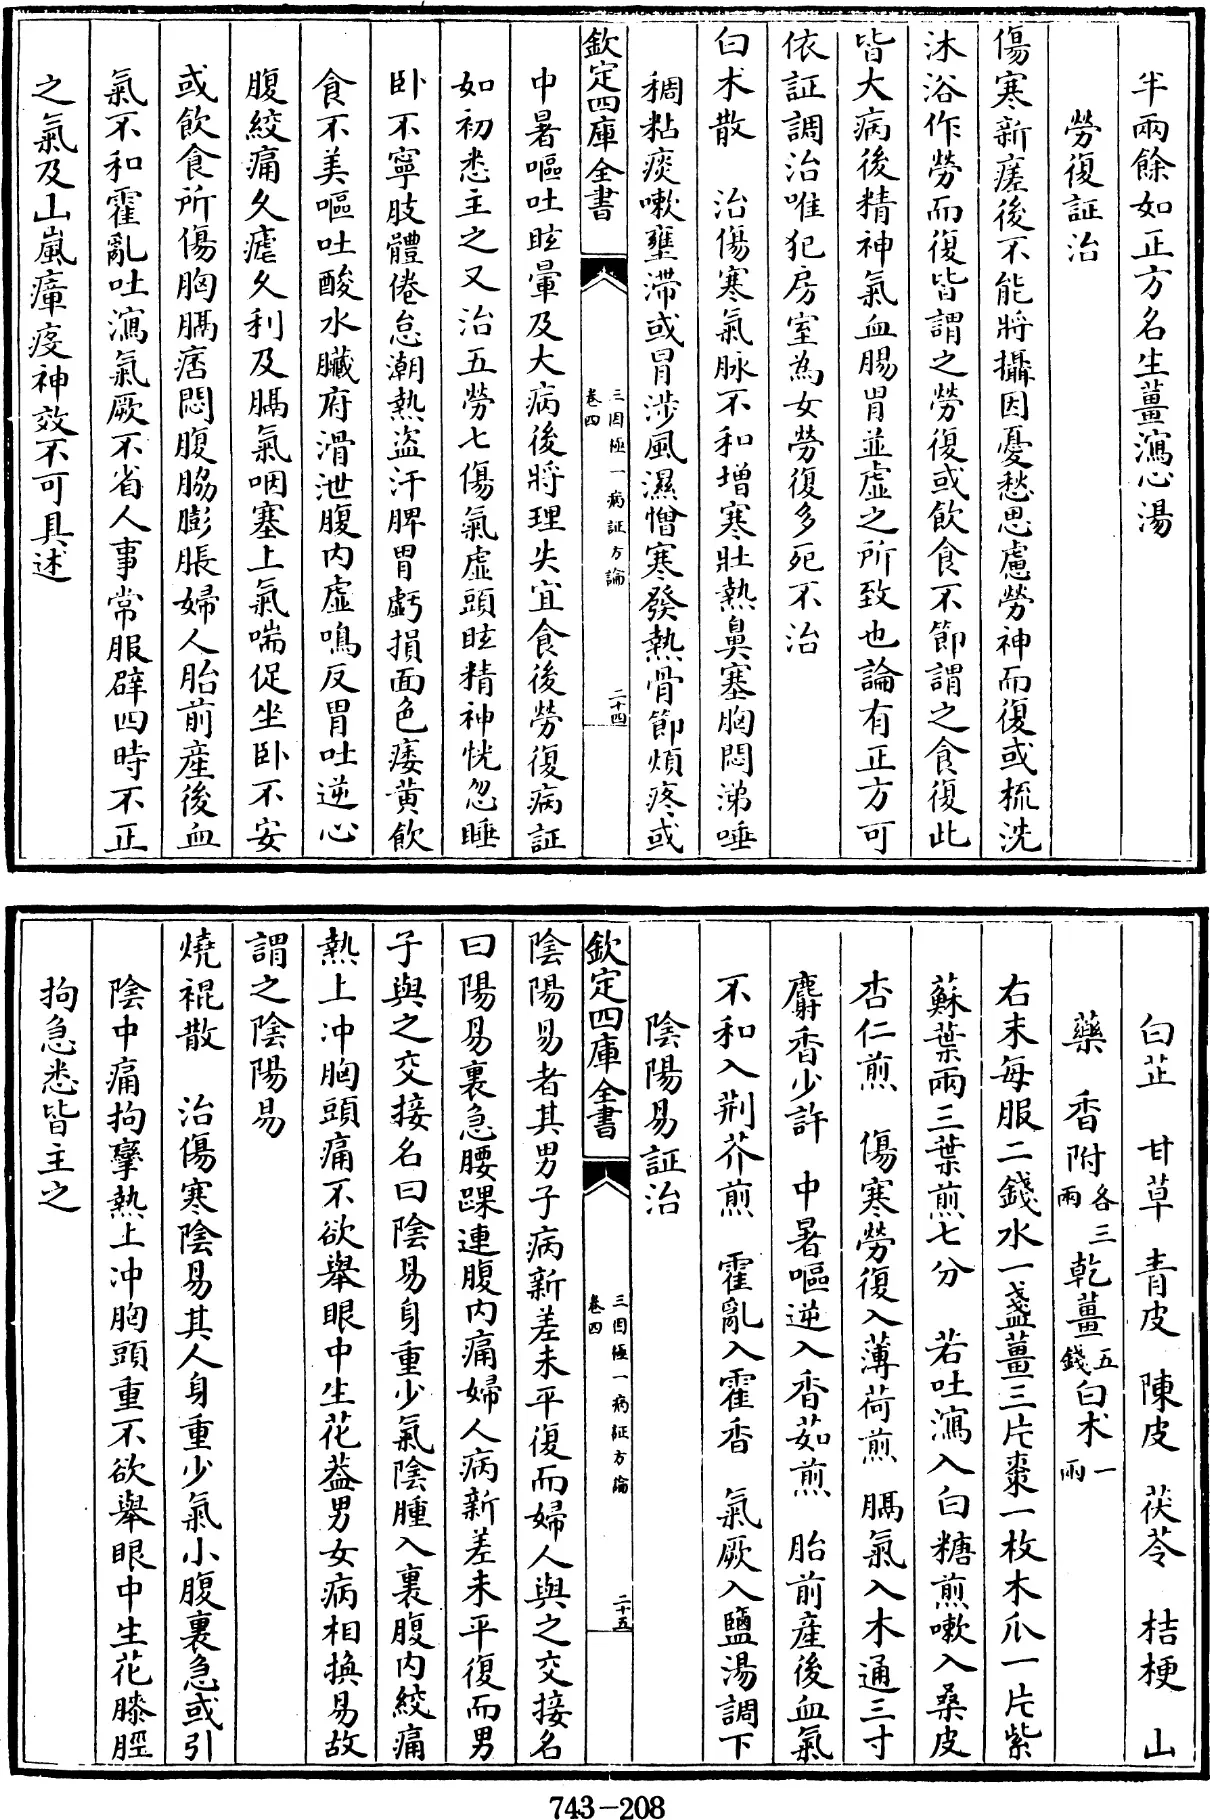 半兩餘如正方名生薑瀉心湯
勞復証治
傷寒新瘥後不能將攝因憂愁思慮勞神而復或梳洗
沐浴作勞而復皆謂之勞復或飲食不節謂之食復此
皆大病後精神氣血腸胃並虛之所致也論有正方可
依証調治唯犯房室為女勞復多死不治
白术散　治傷寒氣脉不和增寒壯熱鼻塞胸悶涕唾
稠粘痰嗽壅滯或冒涉風濕憎寒發熱骨節煩疼或
欽定四庫全書
三因極一病証方論
卷四
二十四
中暑嘔吐眩暈及大病後將理失宜食後勞復病証
如初悉主之又治五勞七傷氣虛頭眩精神恍忽睡
卧不寧肢體倦怠潮熱盜汗脾胃虧損面色痿黃飲
食不美嘔吐酸水臟府滑泄腹內虛鳴反胃吐逆心
腹絞痛久瘧久利及膈氣咽塞上氣喘促坐卧不安
或飲食所傷胸膈痞悶腹脇膨脹婦人胎前產後血
氣不和霍亂吐瀉氣厥不省人事常服辟四時不正
之氣及山嵐瘴疫神效不可具述
白芷　甘草　青皮　陳皮　茯苓　桔梗　山
藥　香附各三兩　乾薑五錢　白术一兩
右末每服二錢水一盞薑三片棗一枚木瓜一片紫
蘇葉兩三葉煎七分　若吐瀉入白糖煎嗽入桑皮
杏仁煎　傷寒勞復入薄荷煎　膈氣入木通三寸
麝香少許　中暑嘔逆入香茹煎　胎前產後血氣
不和入荆芥煎　霍亂入霍香　氣厥入鹽湯調下
陰陽易証治
欽定四庫全書
三因極一病証方論
卷四
二十五
陰陽易者其男子病新差未平復而婦人與之交接名
曰陽易裏急腰踝連腹內痛婦人病新差未平復而男
子與之交接名曰陰易身重少氣陰腫入裏腹內絞痛
熱上冲胸頭痛不欲舉眼中生花葢男女病相換易故
謂之陰陽易
燒裩散　治傷寒陰易其人身重少氣小腹裏急或引
陰中痛拘攣熱上冲胸頭重不欲舉眼中生花膝脛
拘急悉皆主之
743-208